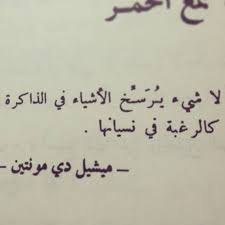 لا شيء يُرَسِّخ الأشياء في الذاكرة
كالرغبة في نسيانها .
ــ ميشيل دي مونتين ــ